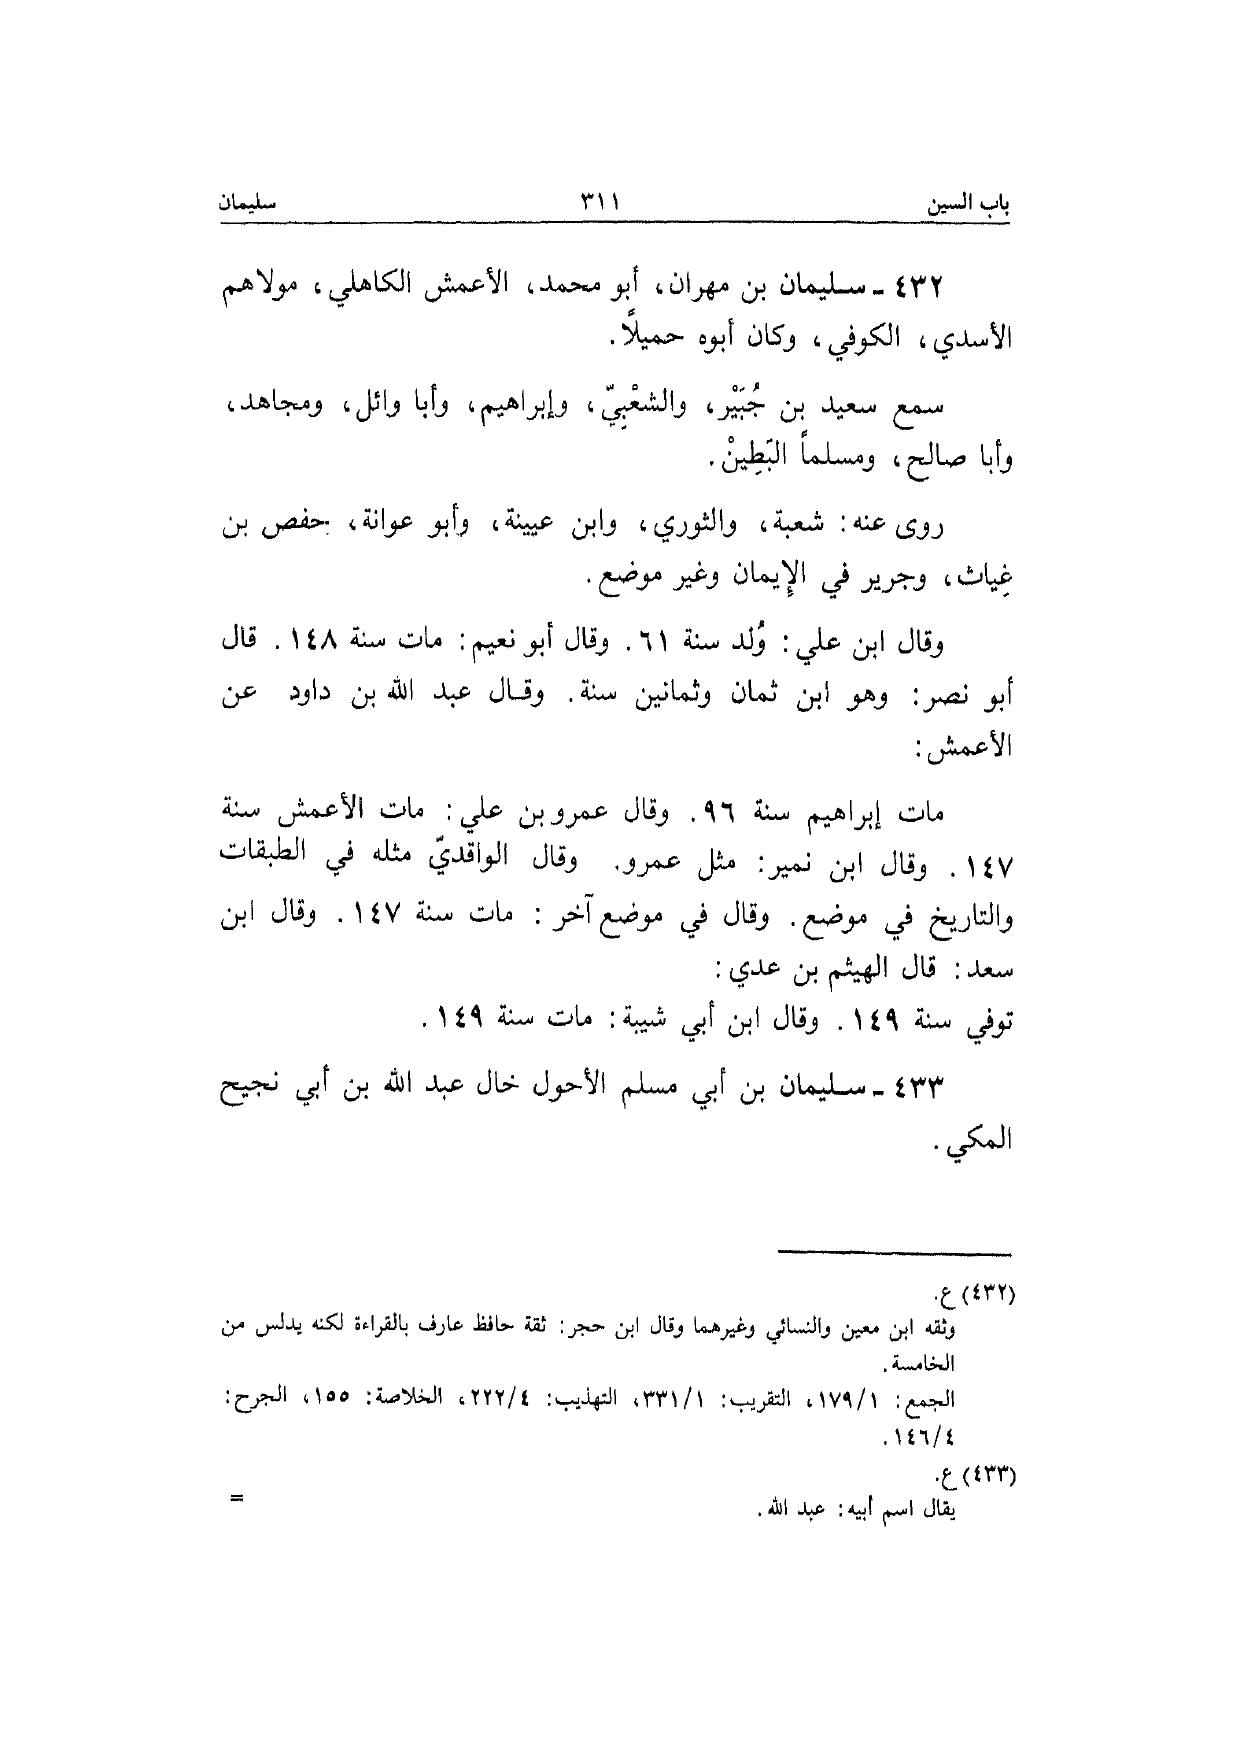 باب السين ٣١١ سليمان
٤٣٢ ـ سليمان بن مهران، أبو محمد، الأعمش الكاهلي، مولاهم
الأسدي، الكوفي، وكان أبوه حميلاً.
سمع سعيد بن جُبَيْر، والشعْبِيّ، وإبراهيم، وأبا وائل، ومجاهد،
وأبا صالح، ومسلماً البَطِينْ.
روى عنه: شعبة، والثوري، وابن عيينة، وأبو عوانة، حفص بن
غِياث، وجرير في الإِيمان وغير موضع.
وقال ابن علي: وُلد سنة ٦١. وقال أبو نعيم: مات سنة ١٤٨. قال
أبو نصر: وهو ابن ثمان وثمانين سنة. وقال عبد الله بن داود عن
الأعمش:
مات إبراهيم سنة ٩٦. وقال عمرو بن علي: مات الأعمش سنة
١٤٧. وقال ابن نمير: مثل عمرو. وقال الواقديّ مثله في الطبقات
والتاريخ في موضع. وقال في موضع آخر: مات سنة ١٤٧. وقال ابن
سعد: قال الهيثم بن عدي:
توفي سنة ١٤٩. وقال ابن أبي شيبة: مات سنة ١٤٩.
٤٣٣ ـ سليمان بن أبي مسلم الأحول خال عبد الله بن أبي نجيح
المكي.
(٤٣٢) ع.
وثقه ابن معين والنسائي وغيرهما وقال ابن حجر: ثقة حافظ عارف بالقراءة لكنه يدلس من
الخامسة.
الجمع: ١٧٩/١، التقريب: ٣٣١/١، التهذيب: ٢٢٢/٤، الخلاصة: ١٥٥، الجرح:
١٤٦/٤.
(٤٣٣) ع.
يقال اسم أبيه: عبد الله. =